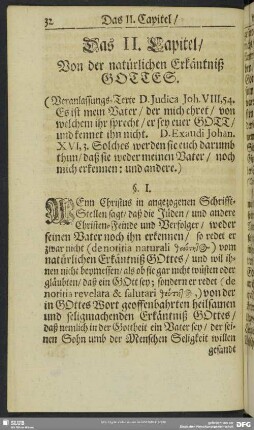 32 Das II. Capitel/
Das II. Capitel/
Von der natürlichen Erkäntniß
GOTTES.
(Veranlassungs-Texte D. Judica Joh. VIII, 54.
Es ist mein Vater/ der mich ehret/ von
welchem ihr sprecht/ er sey euer GOTT/
und kennet ihn nicht. D. Exaudi Johan.
XVI, 3. Solches werden sie euch darumb
thun/ daß sie weder meinen Vater/ noch
mich erkennen: und andere.)
§. I.
WEnn Christus in angezogenen Schrifft-
Stellen sagt/ daß die Jüden/ und andere
Christen-Feinde und Verfolger/ weder
seinen Vater noch ihn erkennen/ so redet er
zwar nicht (de notitia naturali) von
natürlichen Erkäntniß GOttes/ und wil ih-
nen nicht beymessen/ als ob sie gar nicht wüsten oder
gläubten/ daß ein GOtt sey; sondern er redet (de
notitia revelata & salutari) von der in
GOttes Wort geoffenbahrten heilsamen
und seligmachenden Erkäntniß GOttes/
daß nemlich in der Gottheit ein Vater sey/ der sei-
nen Sohn umb der Menschen Seligkeit willen
gesandt
SLUB
DFG